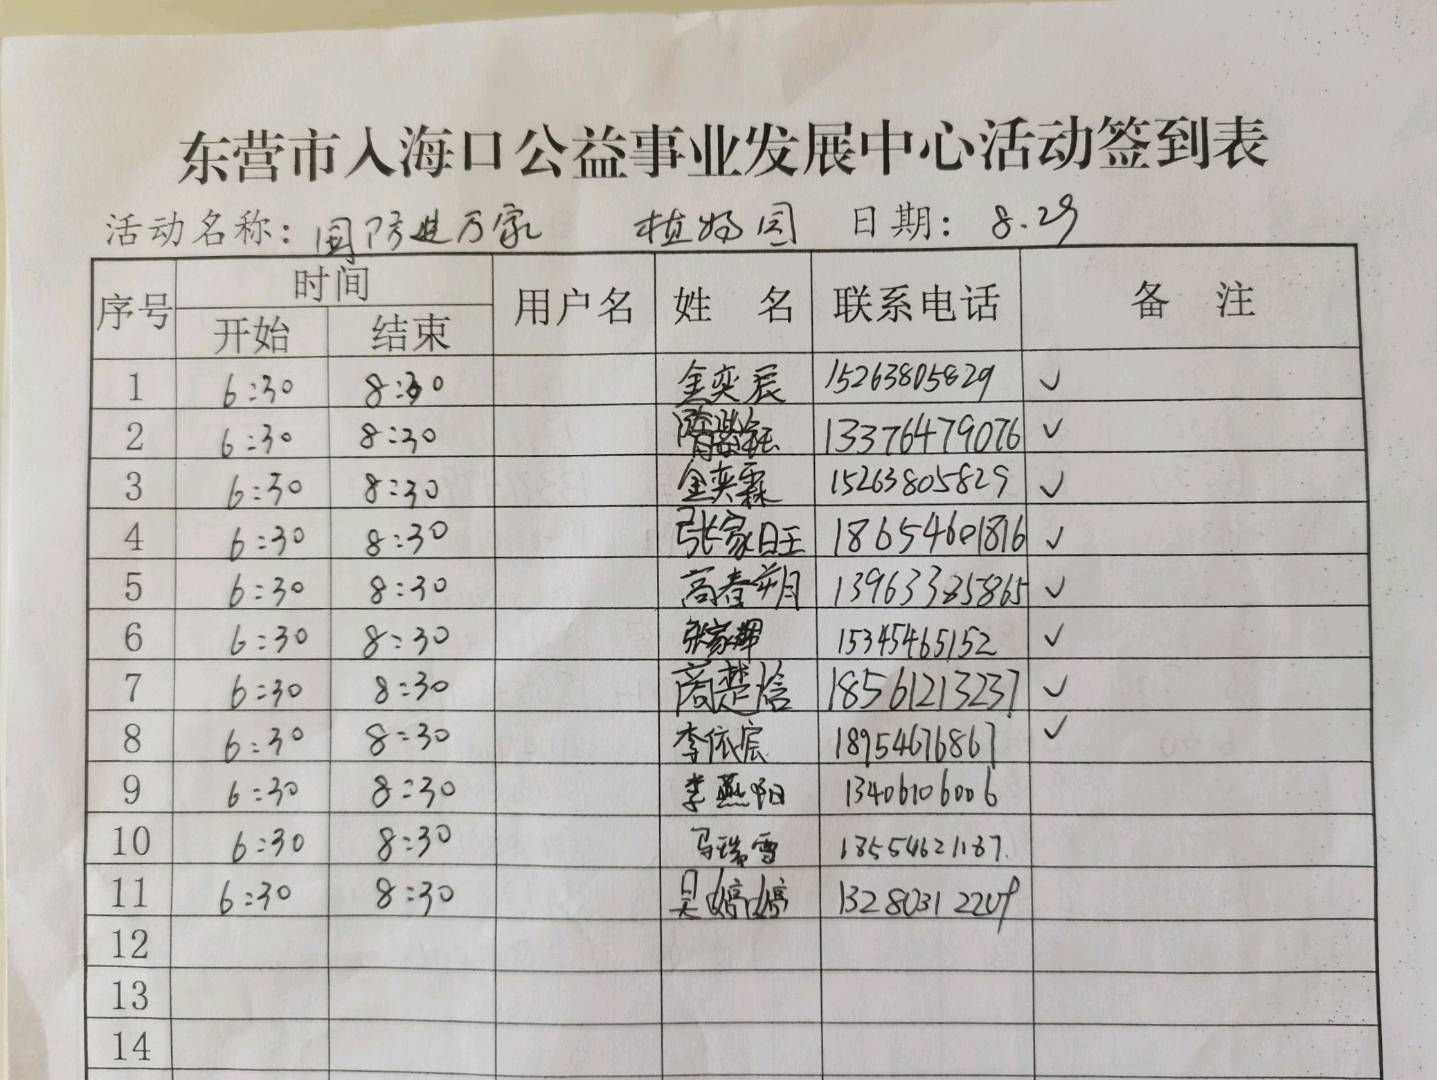 东营市入海口公益事业发展中心活动签到表
活动名称：国防进万家 植物园 日期：8.29
序号 时间 用户名 姓 名 联系电话 备 注
开始 结束
1 6:30 8:30 金奕辰 15263805829 ✓
2 6:30 8:30 13376479076 ✓
3 6:30 8:30 金奕霖 15263805829 ✓
4 6:30 8:30 张家旺 18654601816 ✓
5 6:30 8:30 高春朔 13963385865 ✓
6 6:30 8:30 张家辉 15345465152 ✓
7 6:30 8:30 商楚涵 18561213237 ✓
8 6:30 8:30 李依宸 18954676867 ✓
9 6:30 8:30 李燕阳 13406106006
10 6:30 8:30 马瑞雪 18554621187.
11 6:30 8:30 吴婷婷 13280312209
12
13
14